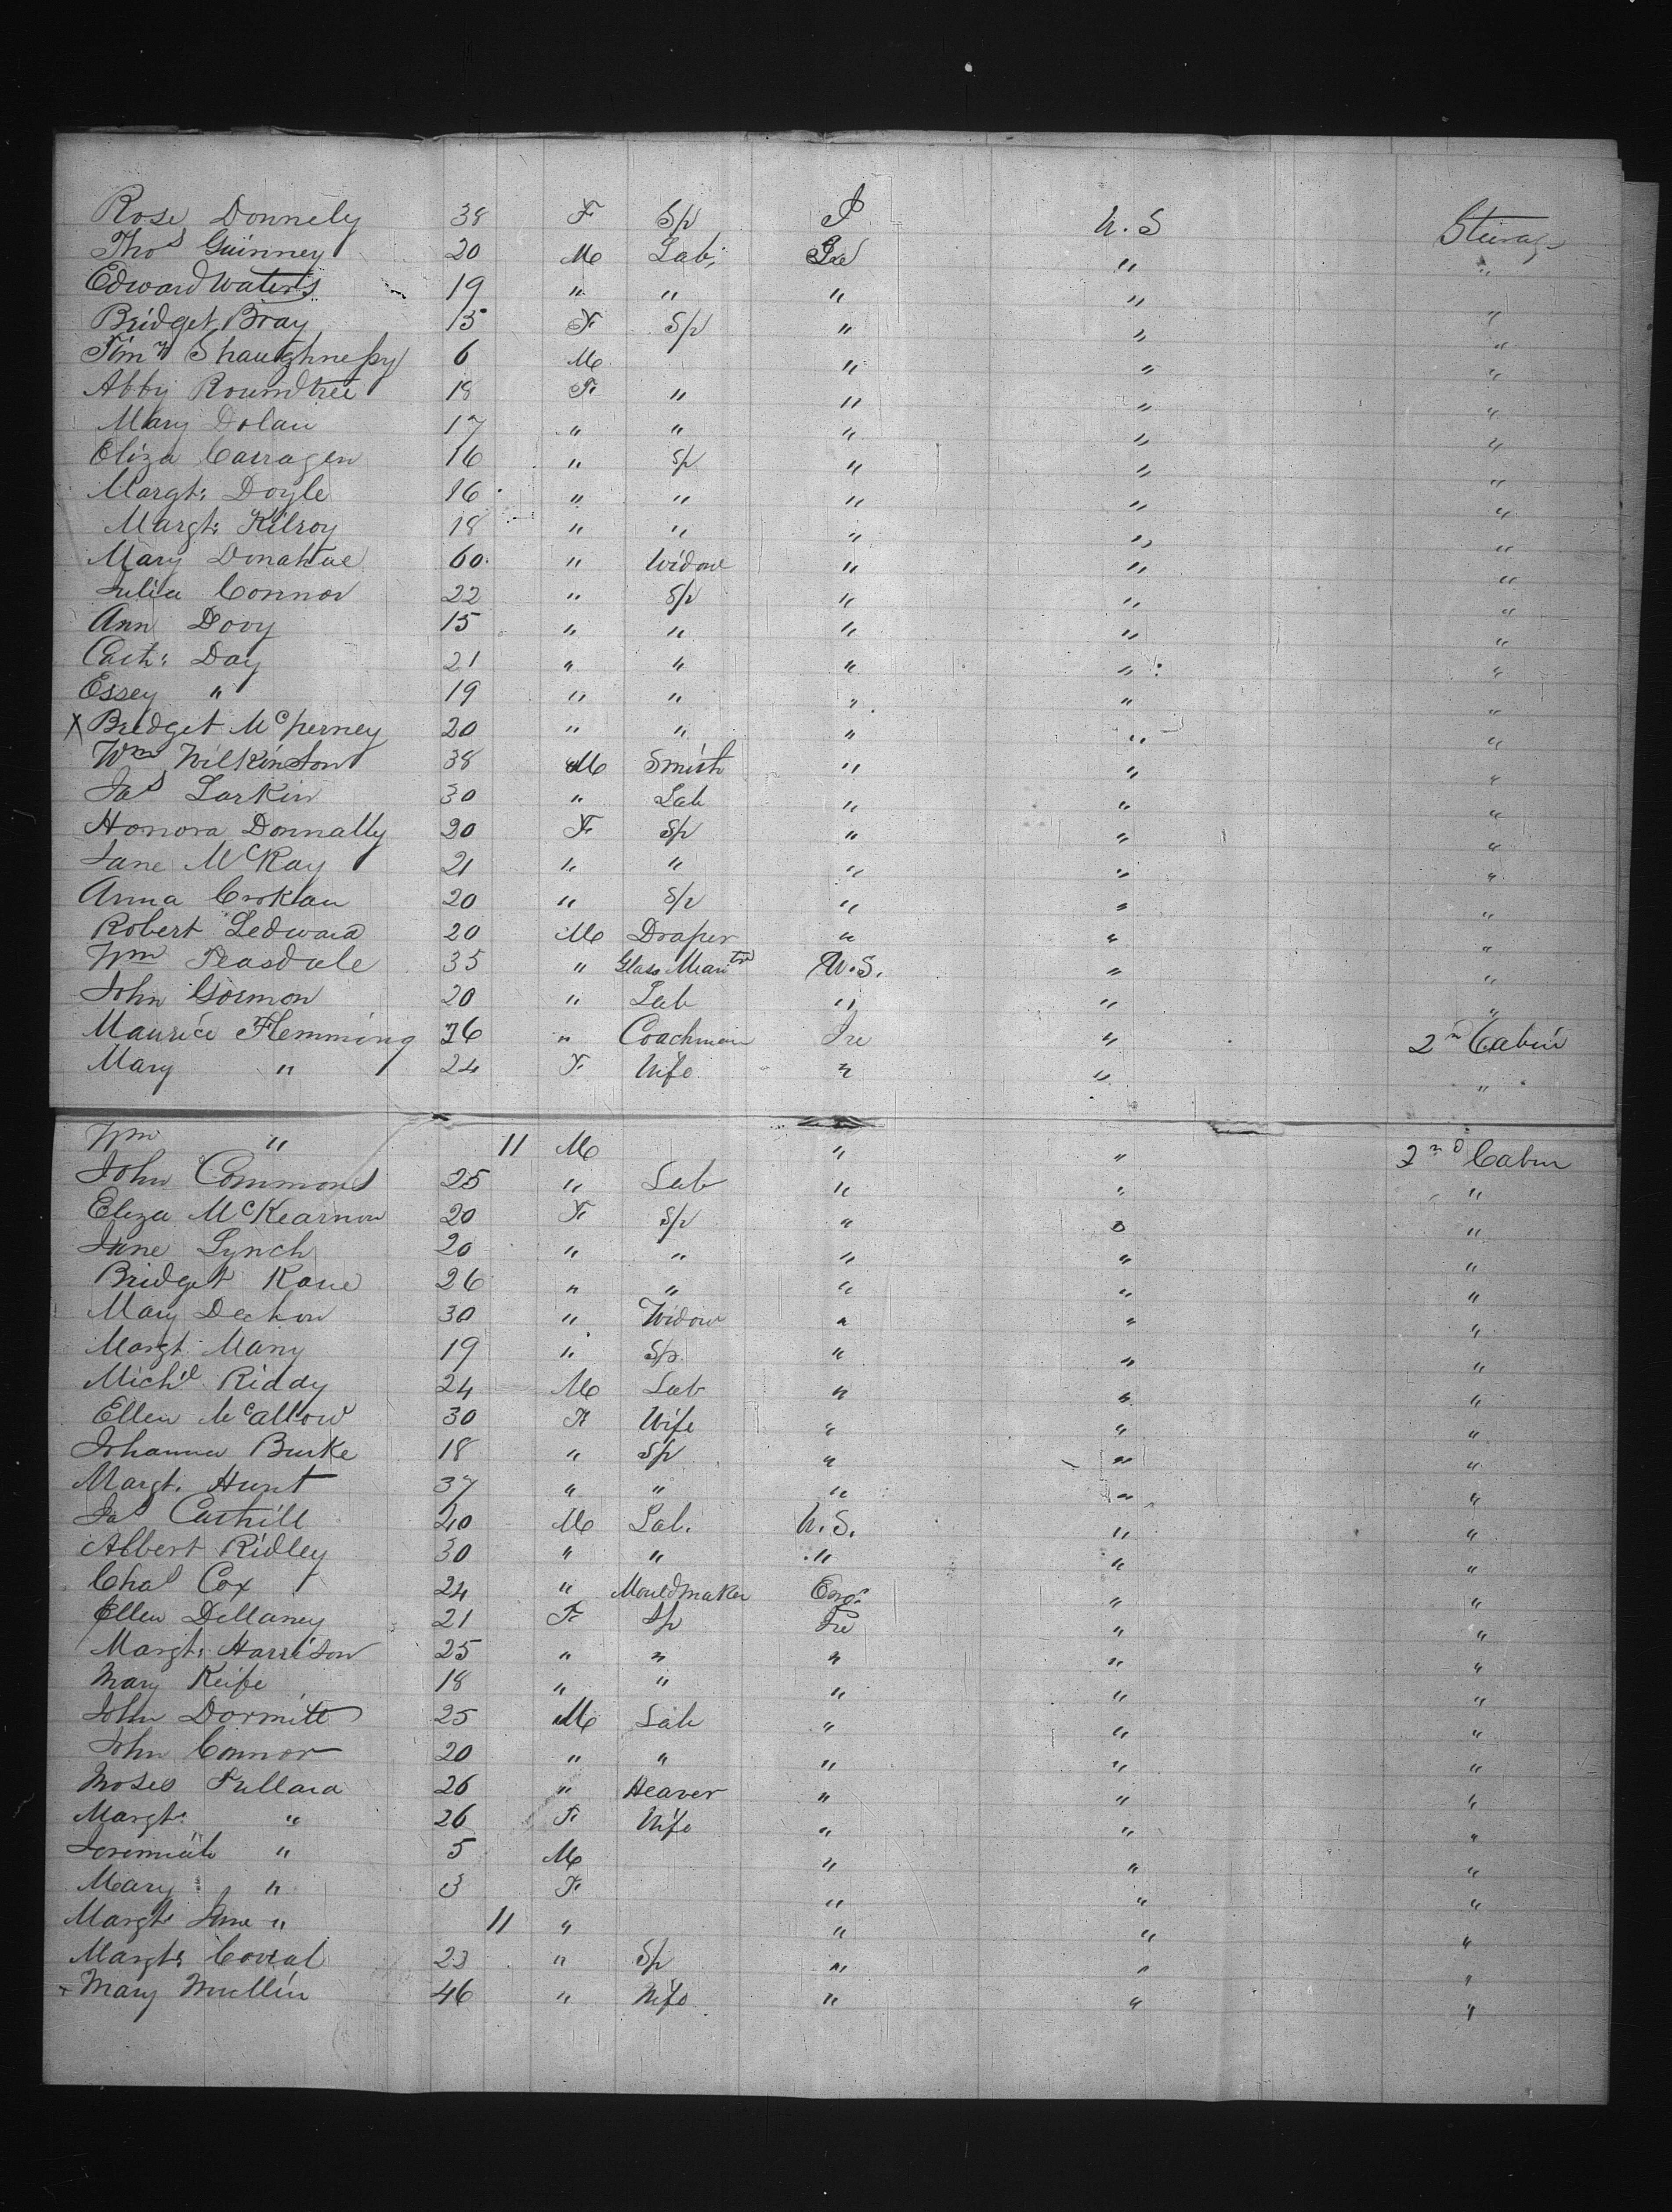 Rose Donnely 38 F Sp I U.S Steirag
Thos Guinney 20 M Lab: Ire " "
Edward Waters 19 " " " " "
Bridget Bray 15 F Sp " " "
Timy Shaughnessy 6 M " " "
Abby Roundtree 18 F " " " "
Mary Dolan 17 " " " " "
Eliza Carragen 16 " Sp " " "
Margt: Doyle 16 " " " " "
Margt: Kilroy 18 " " " " "
Mary Donahue 60 " Widow " " "
Julia Connor 22 " Sp " " "
Ann Dovy 15 " " " " "
Cath: Day 21 " " " " "
Essey " 19 " " " " "
X Bridget Mc 20 " " " " "
Wm Wilkinson 38 M Smith " " "
Jas Larkin 30 " Lab " " "
Honora Donnally 20 F Sp " " "
Jane McKay 21 " " " " "
Anna 20 " Sp " " "
Robert Ledward 20 M Draper " " "
Wm Peasdale 35 " Glass U.S. " "
John Gormon 20 " Lab " " "
Maurice Flemming 26 " Coachman Ire " 2nd Cabin
Mary " 24 F Wife " " "
Wm " 11 M " " 2nd Cabin
John Commons 25 " Lab " " "
Eliza McKearnon 20 F Sp " " "
Jane Lynch 20 " " " " "
Bridget Kane 26 " " " " "
Mary 30 " Widow " " "
Margt Many 19 " Sp " " "
Mich'l Riddy 24 M Lab " " "
Ellen 30 F Wife " " "
Johanna Burke 18 " Sp " " "
Margt. Hunt 37 " " " " "
Jas Carhill 40 M Lab. U.S. " "
Albert Ridley 30 " " " " "
Chas Cox 24 " Mouldmaker Eng: " "
Ellen Dellaney 21 F Sp Ire " "
Margt: Harrison 25 " " " " "
Mary Keife 18 " " " " "
John Dormitt 25 M Lab " " "
John Connor 20 " " " " "
Moses Pullara 26 " Heaver " " "
Margt: " 26 F Wife " " "
Jeremiah " 5 M " " "
Mary " 3 F " " "
Margt Jane " 11 " " " "
Margt: 23 " Sp " " "
Mary Mullin 46 " Wife " " "